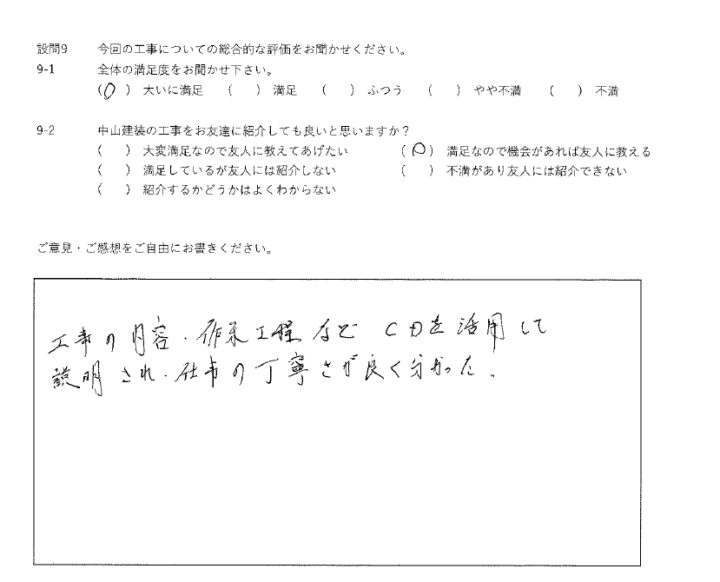 設問9 今回の工事についての総合的な評価をお聞かせください。
9-1 全体の満足度をお聞かせ下さい。
(○) 大いに満足 ( ) 満足 ( ) ふつう ( ) やや不満 ( ) 不満
9-2 中山建装の工事をお友達に紹介しても良いと思いますか？
( ) 大変満足なので友人に教えてあげたい (○) 満足なので機会があれば友人に教える
( ) 満足しているが友人には紹介しない ( ) 不満があり友人には紹介できない
( ) 紹介するかどうかはよくわからない
ご意見・ご感想をご自由にお書きください。
工事の内容・作業工程など CDを活用して
説明され・仕事の丁寧さが良く分かった.